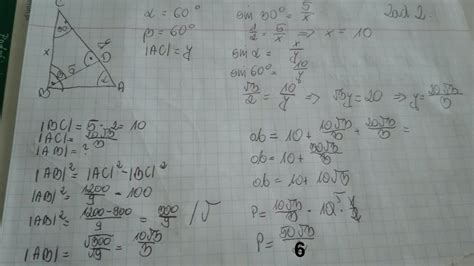 Zad 2.
C
x
5
D
α
B
A
α = 60°
β = 60°
|AC| = y
sin 30° = 5/x
1/2 = 5/x => x = 10
sin α = x/y
sin 60° = 10/y
√3/2 = 10/y => √3y = 20 => y = 20√3/3
|BC| = 5 · 2 = 10
|AC| = 20√3/3
|AB| = ?
|AB|² = |AC|² - |BC|²
|AB|² = 1200/9 - 100
|AB|² = 1200-900/9 = 300/9 /√
|AB| = √300/√9 = 10√3/3
ob = 10 + 10√3/3 + 20√3/3 =
ob = 10 + 30√3/3
ob = 10 + 10√3
P = 10√3/3 · 10⁵ · 1/2
P = 50√3/6